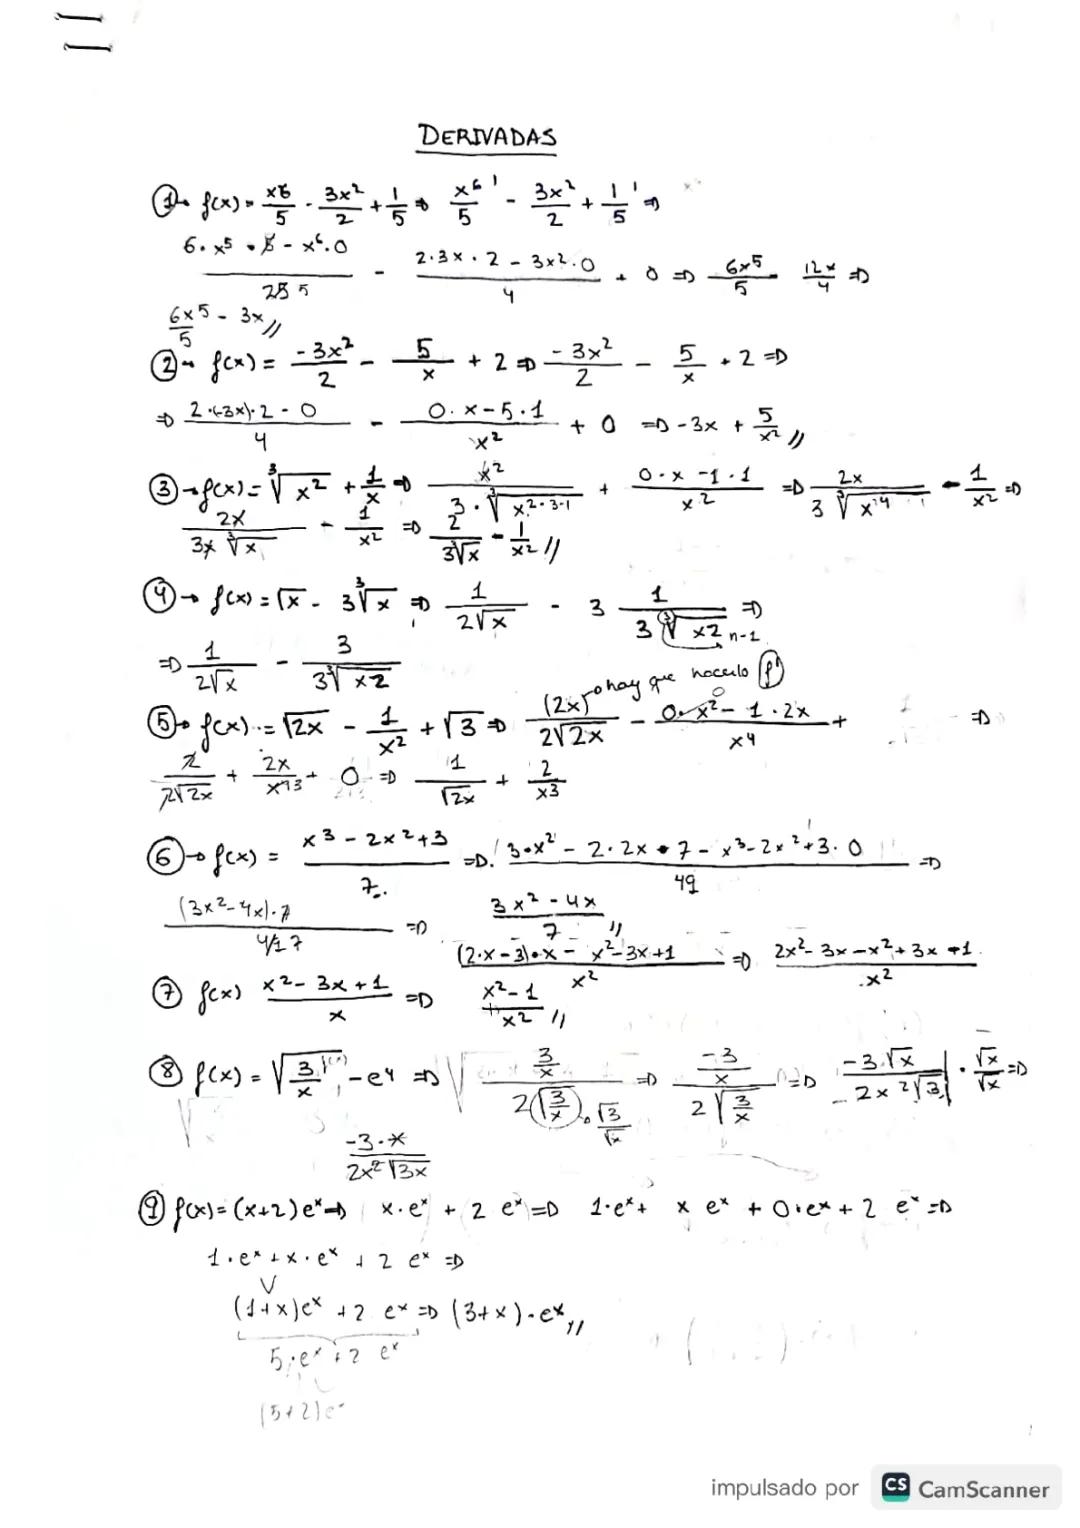 DERIVADAS
① → f(x) = x6/5 - 3x²/2 + 1/5 ⇒ x⁶'/5 - 3x²/2 + 1'/5 ⇒
(6·x⁵·5 - x⁶·0)/25 5 - (2·3x·2 - 3x²·0)/4 + 0 ⇒ 6x⁵/5 - 12x/4 ⇒
6x⁵/5 - 3x //
② → f(x) = -3x²/2 - 5/x + 2 ⇒ -3x²/2 - 5/x + 2 ⇒
⇒ (2·(-3x)·2 - 0)/4 - (0·x - 5·1)/x² + 0 ⇒ -3x + 5/x² //
③ → f(x) = ∛x² + 1/x ⇒ x²/(3·∛x^2·3-1) + (0·x - 1·1)/x² ⇒ 2x/(3∛x⁴) - 1/x² ⇒
2x/(3x ∛x) - 1/x² ⇒ 2/(3∛x) - 1/x² //
④ → f(x) = √x - 3∛x ⇒ 1/(2√x) - 3 1/(3∛x2) n-1 ⇒
⇒ 1/(2√x) - 3/(3∛x2)
hay que hacerlo f'
⑤ → f(x) = √2x - 1/x² + √3 ⇒ (2x)/(2√2x) - (0·x² - 1·2x)/x4 + ⇒
2/(2√2x) + 2x/x⁴3 + 0 ⇒ 1/√2x + 2/x3
⑥ → f(x) = (x³ - 2x² + 3)/7 ⇒ (3·x² - 2·2x·7 - x³ - 2x² + 3·0)/49 ⇒
(3x² - 4x)·7/49 7 ⇒ (3x² - 4x)/7 //
⑦ f(x) (x² - 3x + 1)/x ⇒ ((2·x - 3)·x - x² - 3x + 1)/x² ⇒ (2x² - 3x - x² + 3x + 1)/x²
(x² - 1)/x² //
⑧ f(x) = √3/x - e4 ⇒ (3/x)/(2√3/x) √3/√x ⇒ (-3/x)/(2√3/x) ⇒ (-3·√x)/(2x²√3) · √x/√x ⇒
(-3·x)/(2x²√3x)
⑨ f(x) = (x+2)eˣ ⇒ x·eˣ + 2 eˣ ⇒ 1·eˣ + x eˣ + 0·eˣ + 2 eˣ ⇒
1·eˣ + x·eˣ + 2 eˣ ⇒
(1+x)eˣ + 2 eˣ ⇒ (3+x)·eˣ //
5·eˣ + 2 eˣ
(5+2)eˣ
impulsado por CS CamScanner